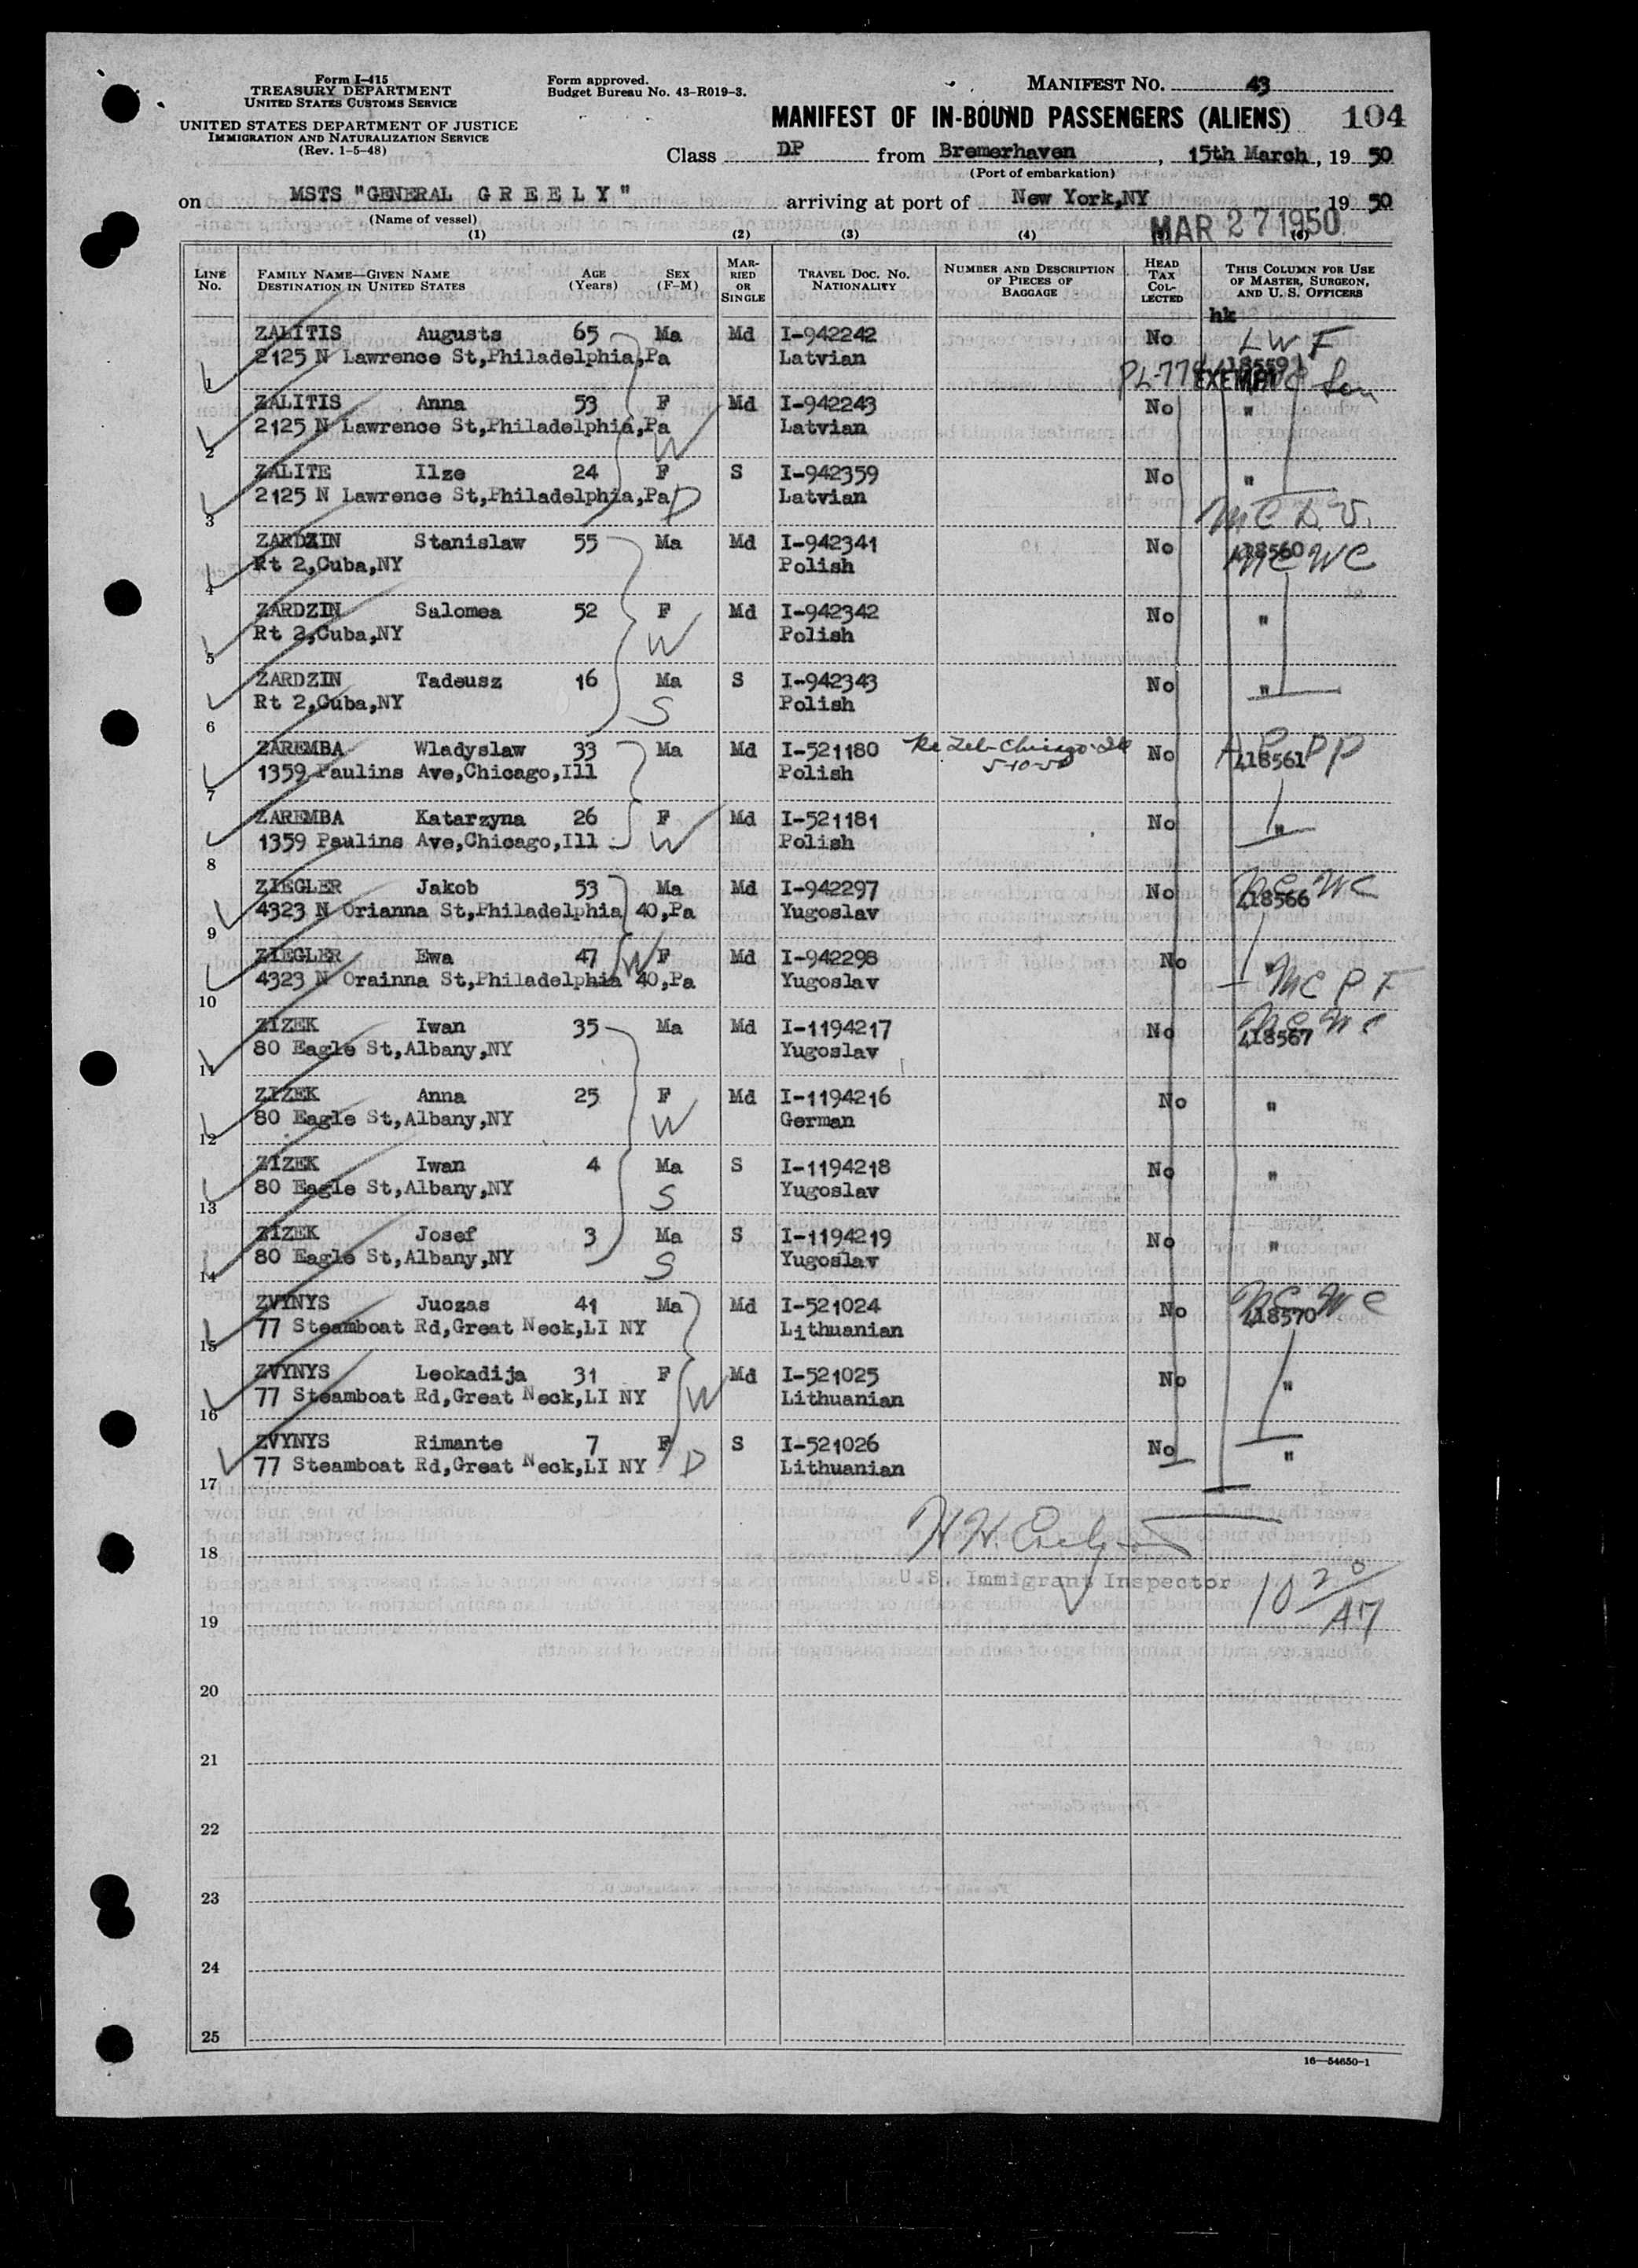 Form I-415
TREASURY DEPARTMENT
UNITED STATES CUSTOMS SERVICE
UNITED STATES DEPARTMENT OF JUSTICE
IMMIGRATION AND NATURALIZATION SERVICE
(Rev. 1-5-48)
Form approved.
Budget Bureau No. 43-R019-3.
MANIFEST No. 43
MANIFEST OF IN-BOUND PASSENGERS (ALIENS) 104
Class DP from Bremerhaven, 15th March, 19 50
(Port of embarkation)
on MSTS "GENERAL G R E E L Y" arriving at port of New York,NY 19 50
(Name of vessel)
MAR 27 1950
(1) (2) (3) (4) (6)
LINE No. FAMILY NAME—GIVEN NAME DESTINATION IN UNITED STATES AGE (Years) SEX (F-M) MARRIED OR SINGLE TRAVEL DOC. No. NATIONALITY NUMBER AND DESCRIPTION OF PIECES OF BAGGAGE HEAD TAX COLLECTED THIS COLUMN FOR USE OF MASTER, SURGEON, AND U. S. OFFICERS
hk
ZALITIS Augusts 65 Ma Md I-942242 No L W F
2125 N Lawrence St,Philadelphia,Pa Latvian
1 PL-774 EXEMPT
ZALITIS Anna 53 F Md I-942243 No "
2125 N Lawrence St,Philadelphia,Pa Latvian
2 W
ZALITE Ilze 24 F S I-942359 No "
2125 N Lawrence St,Philadelphia,Pa D Latvian
3 MC D.V.
ZARDZIN Stanislaw 55 Ma Md I-942341 No 418560
Rt 2,Cuba,NY Polish NC WC
4
ZARDZIN Salomea 52 F Md I-942342 No "
Rt 2,Cuba,NY W Polish
5
ZARDZIN Tadeusz 16 Ma S I-942343 No "
Rt 2,Cuba,NY S Polish
6
ZAREMBA Wladyslaw 33 Ma Md I-521180 No 418561 PP
1359 Paulins Ave,Chicago,Ill Polish 5-10-50
7
ZAREMBA Katarzyna 26 F Md I-521181 No "
1359 Paulins Ave,Chicago,Ill W Polish
8
ZIEGLER Jakob 53 Ma Md I-942297 No NC WC
4323 N Orianna St,Philadelphia 40,Pa Yugoslav 418566
9
ZIEGLER Ewa 47 W F Md I-942298 No "
4323 N Orainna St,Philadelphia 40,Pa Yugoslav MC P F
10
ZIZEK Iwan 35 Ma Md I-1194217 No NC WC
80 Eagle St,Albany,NY Yugoslav 418567
11
ZIZEK Anna 25 F Md I-1194216 No "
80 Eagle St,Albany,NY W German
12
ZIZEK Iwan 4 Ma S I-1194218 No "
80 Eagle St,Albany,NY S Yugoslav
13
ZIZEK Josef 3 Ma S I-1194219 No "
80 Eagle St,Albany,NY S Yugoslav
14
ZVYNYS Juozas 41 Ma Md I-521024 No NC WC
77 Steamboat Rd,Great Neck,LI NY Lithuanian 418570
15
ZVYNYS Leokadija 31 F Md I-521025 No "
77 Steamboat Rd,Great Neck,LI NY W Lithuanian
16
ZVYNYS Rimante 7 F S I-521026 No "
77 Steamboat Rd,Great Neck,LI NY D Lithuanian
17
18
U.S. Immigrant Inspector
19
20
21
22
23
24
25
16—54650-1